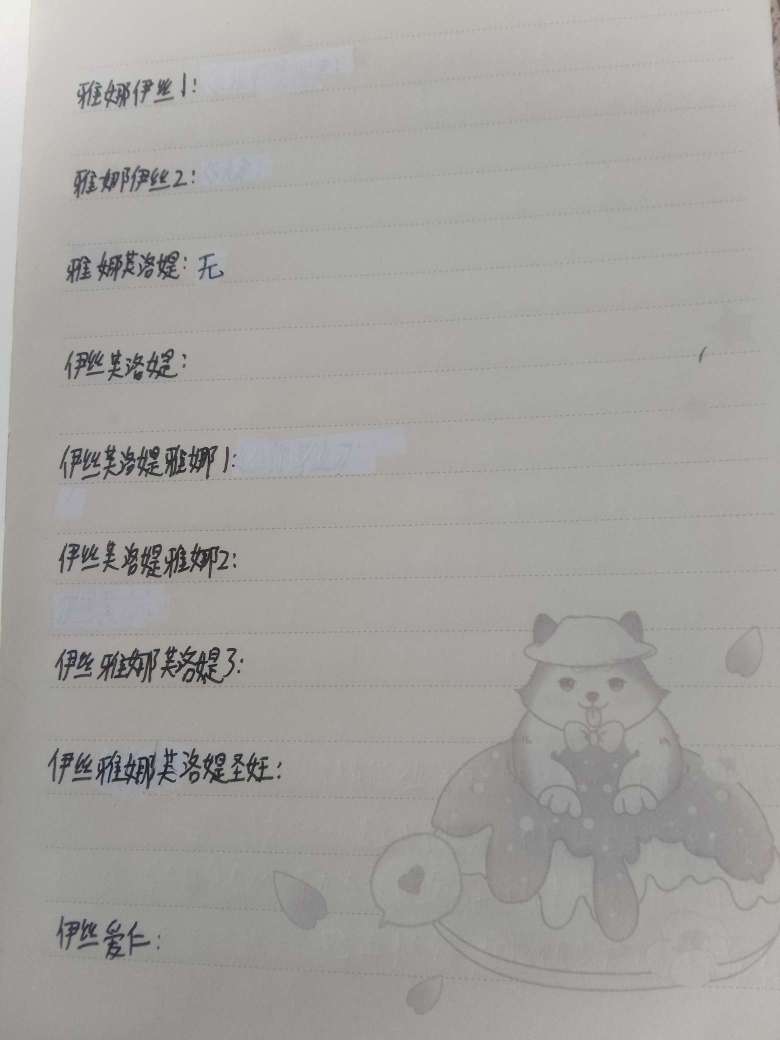 雅娜伊丝1:
雅娜伊丝2:
雅娜芙洛媞: 无
伊丝芙洛媞:
伊丝芙洛媞雅娜1:
伊丝芙洛媞雅娜2:
伊丝雅娜芙洛媞3:
伊丝雅娜芙洛媞圣妊:
伊丝爱仁: